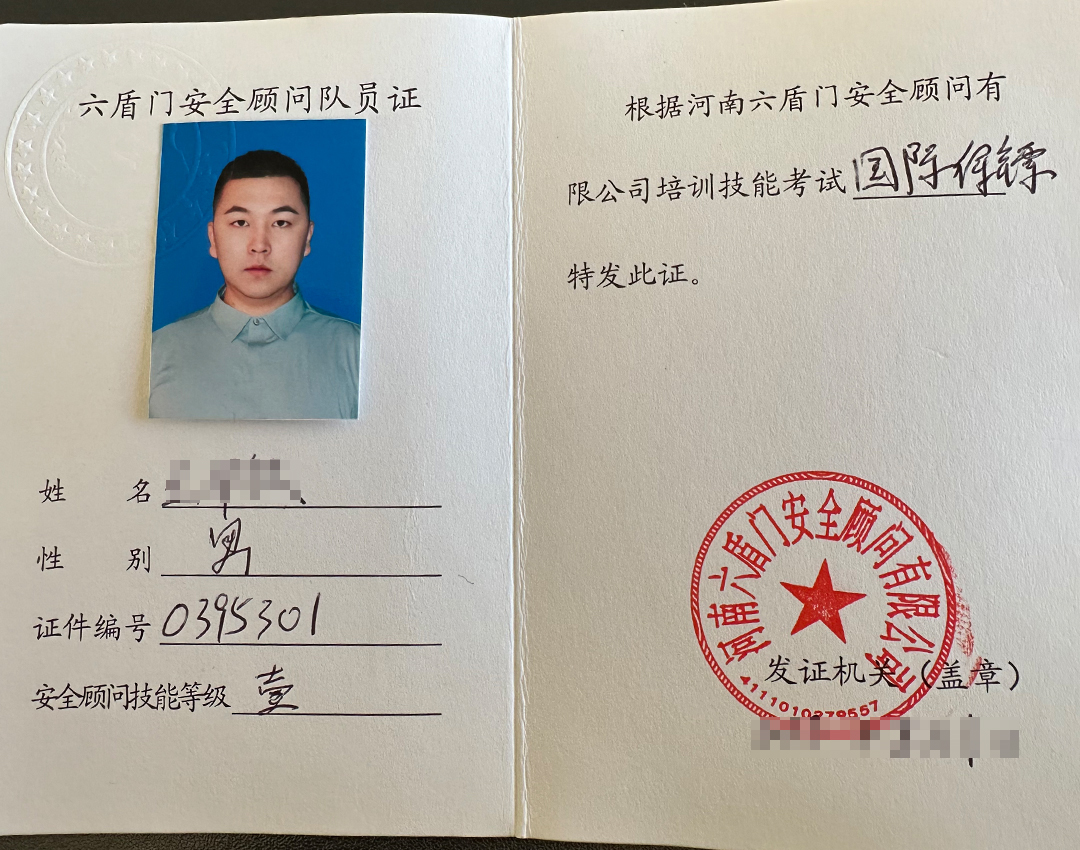 六盾门安全顾问队员证
姓名
性别 男
证件编号 0395301
安全顾问技能等级 壹
根据河南六盾门安全顾问有
限公司培训技能考试国际保镖
特发此证。
河南六盾门安全顾问有限公司
发证机关（盖章）
4111010279557